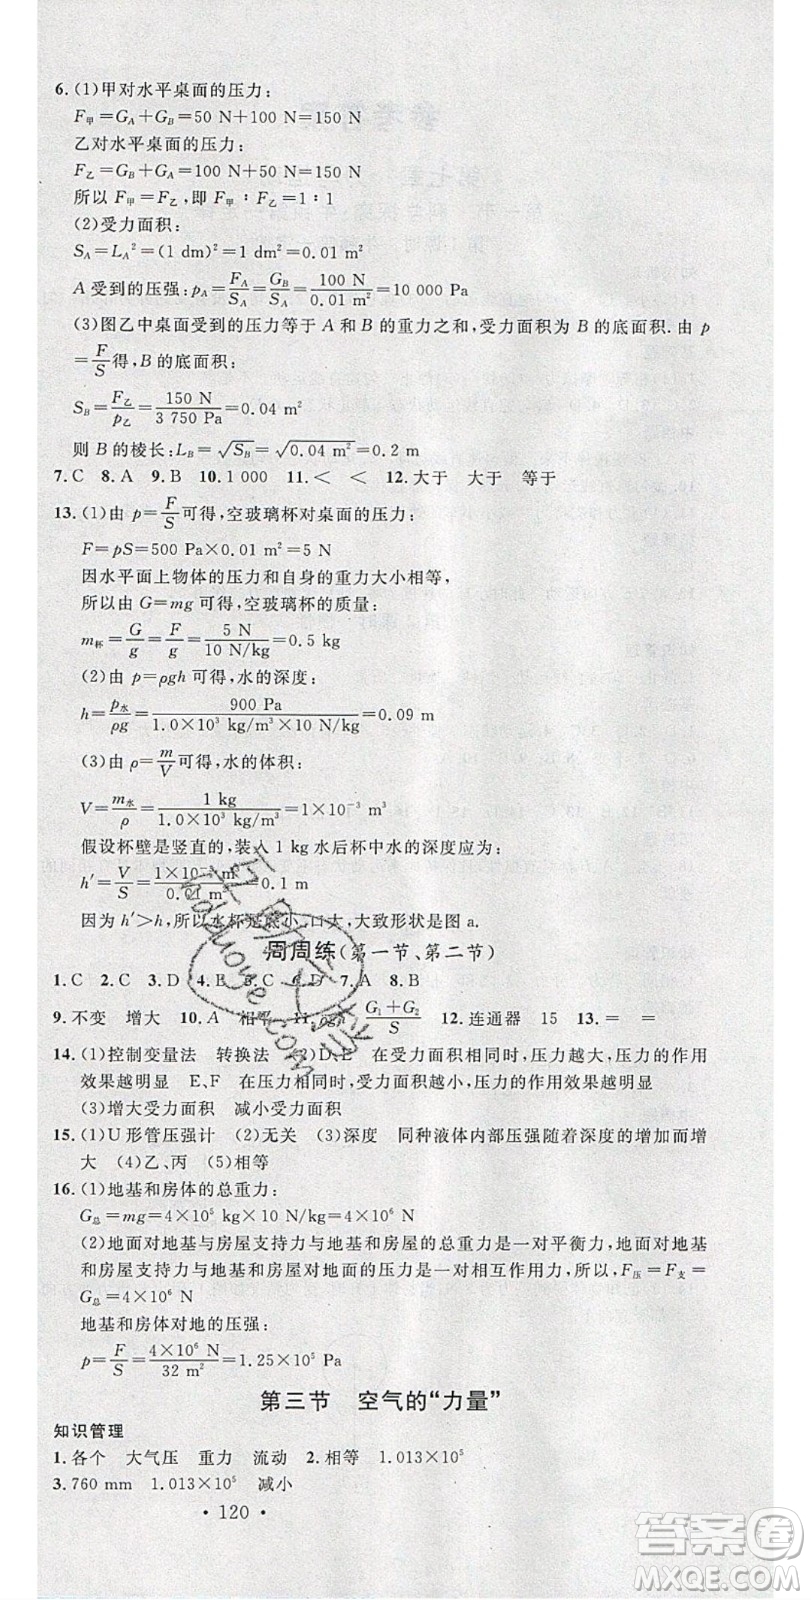 6. (1)甲对水平桌面的压力:
F甲=G_A+G_B=50 N+100 N=150 N
乙对水平桌面的压力:
F乙=G_A+G_B=50 N+100 N=150 N
所以 F甲=F乙,即 F甲∶F乙=1∶1
(2)受力面积:
S_A=L_A²=(1 dm)²=0.01 m²
A 受到的压强:p_A=F_A/S_A=G_B/S_A=100 N/0.01 m²=10 000 Pa
(3)图乙中桌面受到的压力等于 A 和 B 的重力之和,受力面积为 B 的底面积.由 p
=F/S得,B 的底面积:
S_B=F乙/p乙=150 N/3 750 Pa=0.04 m²
则 B 的棱长:L_B=√S_B=√0.04 m²=0.2 m
7. C 8. A 9. B 10. 1 000 11. < < 12. 大于 大于 等于
13. (1)由 p=F/S可得,空玻璃杯对桌面的压力:
F=pS=500 Pa×0.01 m²=5 N
因水平面上物体的压力和自身的重力大小相等,
所以由 G=mg 可得,空玻璃杯的质量:
m杯=G/g=F/g=5 N/10 N/kg=0.5 kg
(2)由 p=ρgh 可得,水的深度:
h=p水/ρg=900 Pa/1.0×10³ kg/m³×10 N/kg=0.09 m
(3)由 ρ=m/V可得,水的体积:
V=m水/ρ=1 kg/1.0×10³ kg/m³=1×10⁻³ m³
假设杯壁是竖直的,装入 1 kg 水后杯中水的深度应为:
h′=V/S=1×10⁻³ m³/0.01 m²=0.1 m
因为 h′>h,所以水杯是底小、口大,大致形状是图 a.
周周练(第一节、第二节)
1. C 2. C 3. D 4. B 5. C 6. D 7. A 8. B
9. 不变 增大 10. A 相平 11. ρgh G₁+G₂/S 12. 连通器 15 13. = =
14. (1)控制变量法 转换法 (2)D、E 在受力面积相同时,压力越大,压力的作用
效果越明显 E、F 在压力相同时,受力面积越小,压力的作用效果越明显
(3)增大受力面积 减小受力面积
15. (1)U 形管压强计 (2)无关 (3)深度 同种液体内部压强随着深度的增加而增
大 (4)乙、丙 (5)相等
16. (1)地基和房体的总重力:
G总=mg=4×10⁵ kg×10 N/kg=4×10⁶ N
(2)地面对地基与房屋支持力与地基和房屋的总重力是一对平衡力,房屋对地基
和房屋支持力与地基和房屋对地面的压力是一对相互作用力,所以,F压=F支=
G总=4×10⁶ N
地基和房体对地的压强:
p=F/S=4×10⁶ N/32 m²=1.25×10⁵ Pa
第三节 空气的“力量”
知识管理
1. 各个 大气压 重力 流动 2. 相等 1.013×10⁵
3. 760 mm 1.013×10⁵ 减小
· 120 ·
答案圈
MXQE.COM